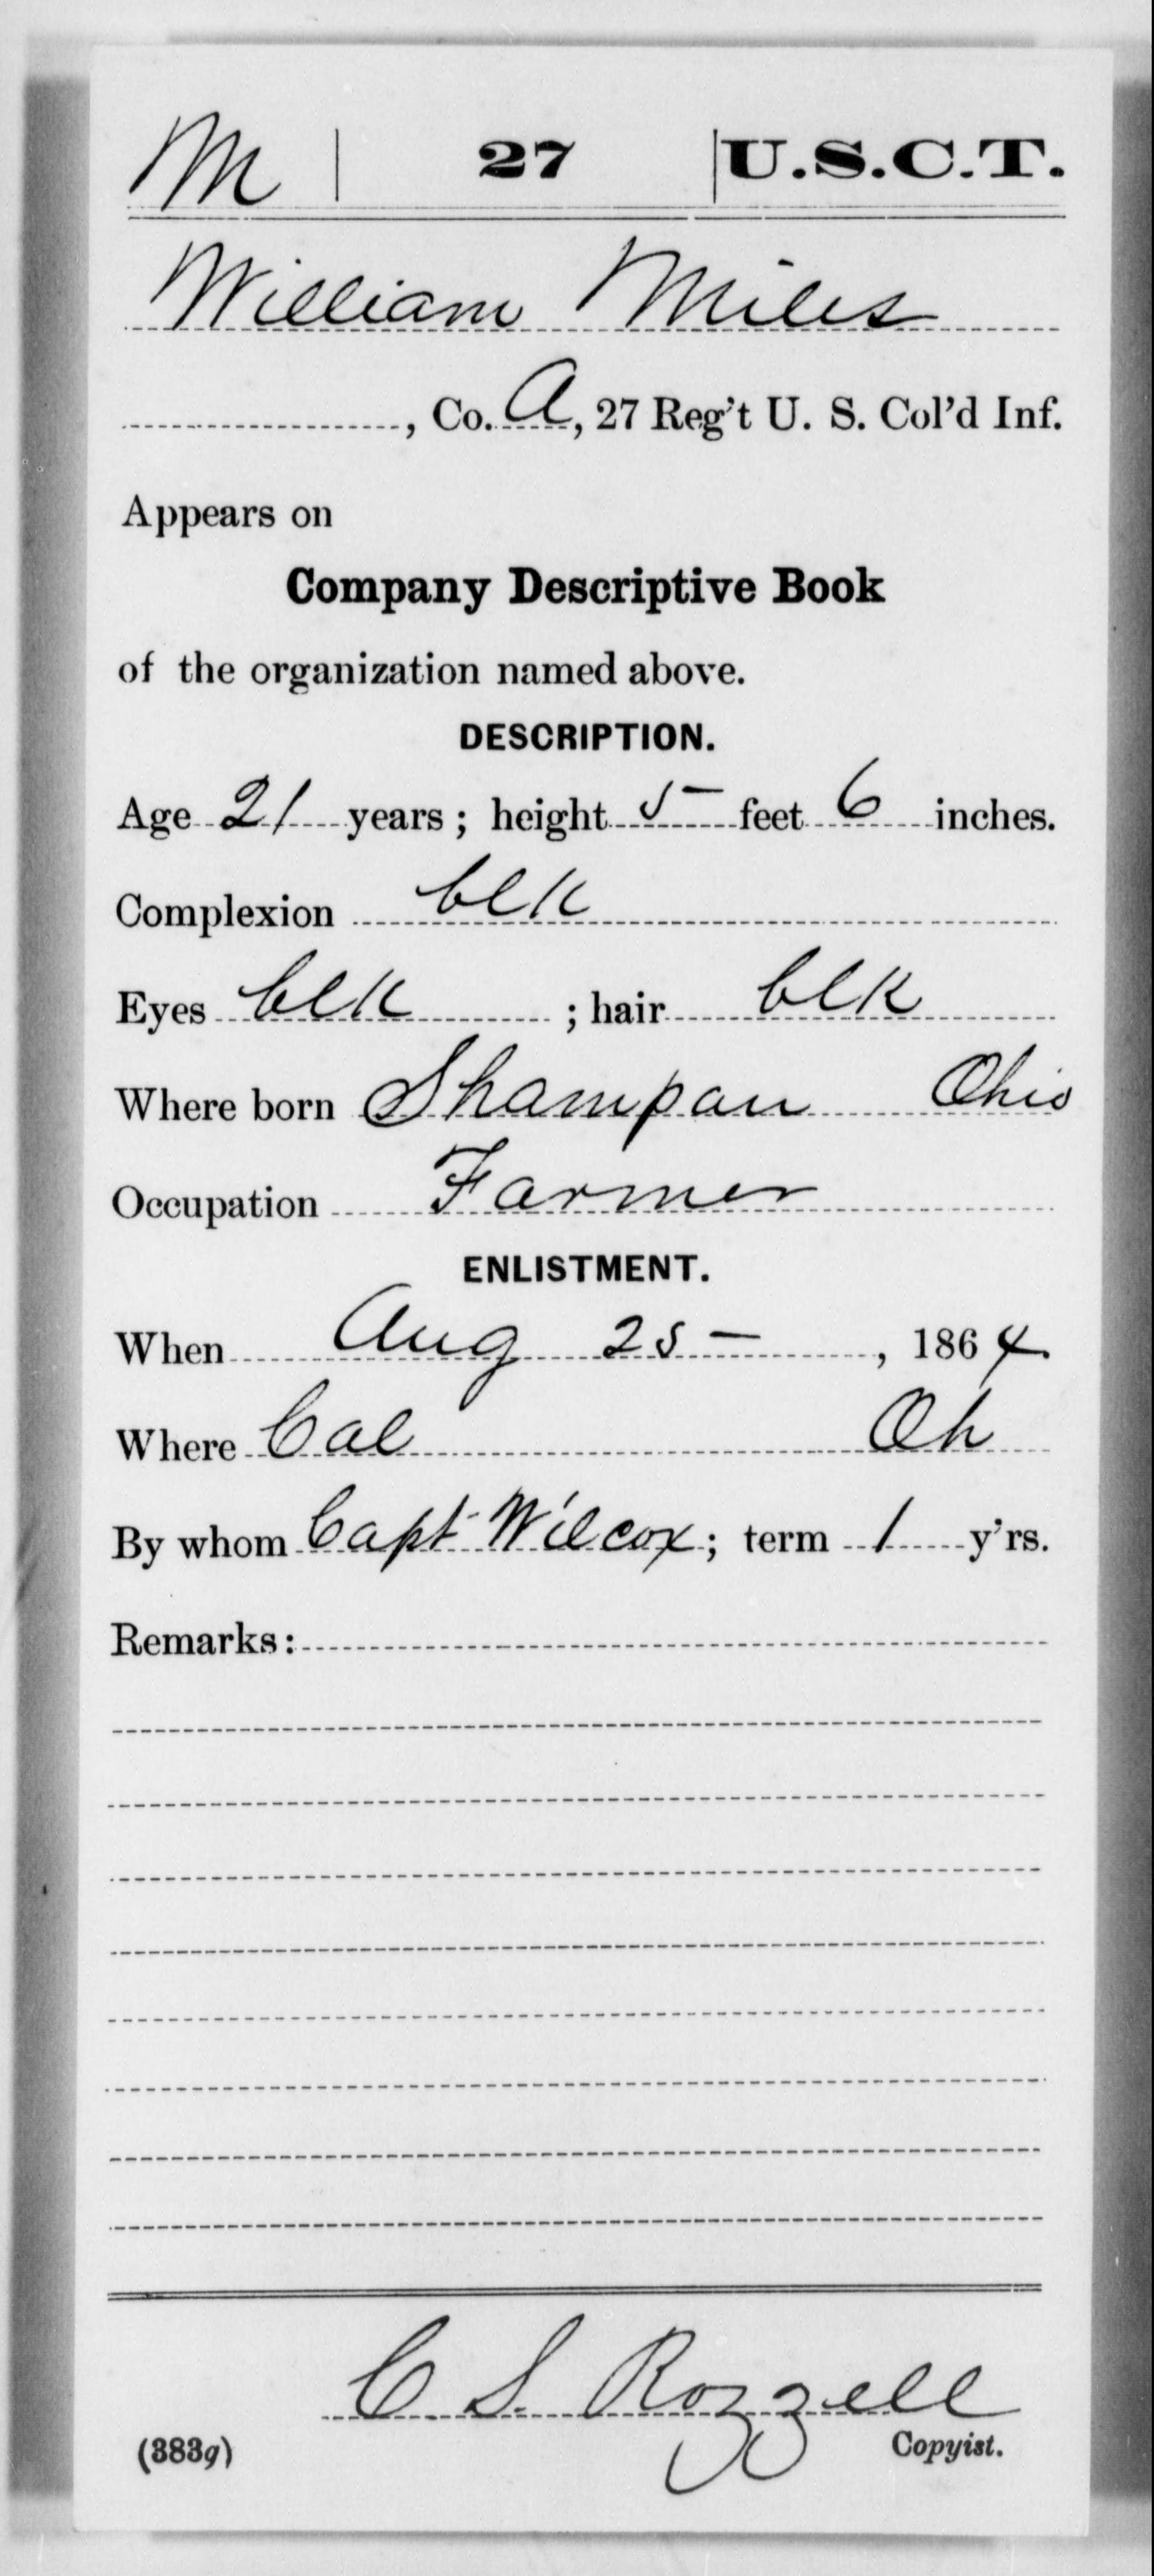 M | 27 | U.S.C.T.
William Miles
, Co. A, 27 Reg't U. S. Col'd Inf.
Appears on
Company Descriptive Book
of the organization named above.
DESCRIPTION.
Age 21 years; height 5 feet 6 inches.
Complexion blk
Eyes blk ; hair blk
Where born Shampan Ohio
Occupation Farmer
ENLISTMENT.
When Aug 25 , 1864.
Where Cal Oh
By whom Capt Wilcox; term 1 y'rs.
Remarks:
C S Rozzell
(383g) Copyist.